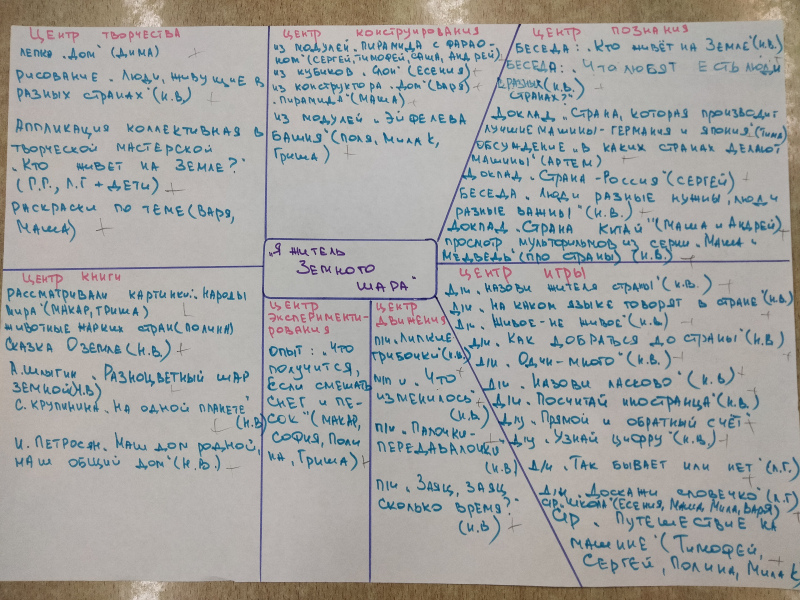 Центр творчества
лепка „Дом" (Дима)
рисование „Люди, живущие в
разных странах" (Н.В.)
Аппликация коллективная в
творческой мастерской
„Кто живет на Земле?"
(Г.Г., Л.Г + дети)
раскраски по теме (Варя,
Маша)
Центр конструирования
из модулей „Пирамида с фарао-
ном" (Сергей, Тимофей, Саша, Андрей)
из кубиков „Слон" (Есения)
из конструктора „Дом" (Варя)
„Пирамида" (Маша)
из модулей „Эйфелева
башня" (Поля, Мила К,
Гриша)
Центр познания
Беседа: „Кто живёт на Земле" (Н.В.)
Беседа: „Что любят есть люди
в разных (Н.В.)
странах?"
Доклад „Страна, которая производит
лучшие машины - Германия и Япония" (Тима)
Обсуждение „В каких странах делают
машины" (Артем)
Доклад „Страна - Россия" (Сергей)
Беседа „Люди разные нужны, люди
разные важны" (Н.В.)
Доклад „Страна Китай" (Маша и Андрей)
просмотр мультфильмов из серии „Маша и
Медведь" (про страны) (Н.В.)
„Я житель
Земного
шара"
Центр книги
Рассматривали картинки „Народы
мира" (Макар, Гриша)
животные жарких стран (Полина)
Сказка О Земле (Н.В)
А. Шлыгин „Разноцветный шар
земной" (Н.В)
С. Крупинина „На одной планете"
(Н.В)
И. Петросян „Наш дом родной,
наш общий дом" (Н.В.)
Центр
эксперименти-
рования
Опыт: „Что
получится,
если смешать
снег и пе-
сок" (Макар,
София, Поли
на, Гриша)
Центр
движения
п/и „Липкие
грибочки" (Н.В)
м/п и „Что
изменилось"
(Н.В)
п/и „Палочки-
передавалочки"
(Н.В)
п/и „Заяц, заяц,
сколько время?"
(Н.В)
Центр игры
д/и „Назови жителя страны" (Н.В.)
д/и „На каком языке говорят в стране" (Н.В)
д/и „Живое-не живое" (Н.В)
д/и „Как добраться до страны" (Н.В)
д/и „Один-много" (Н.В.)
д/и „Назови ласково" (Н.В)
д/и „Посчитай иностранца" (Н.В.)
д/у „Прямой и обратный счёт"
д/у „Узнай цифру" (Н.В.)
д/и „Так бывает или нет" (Л.Г.)
д/и „Доскажи словечко" (Л.Г)
с/р „Школа" (Есения, Маша, Мила, Варя)
с/р „Путешествие на
машине" (Тимофей,
Сергей, Полина, Мила К)